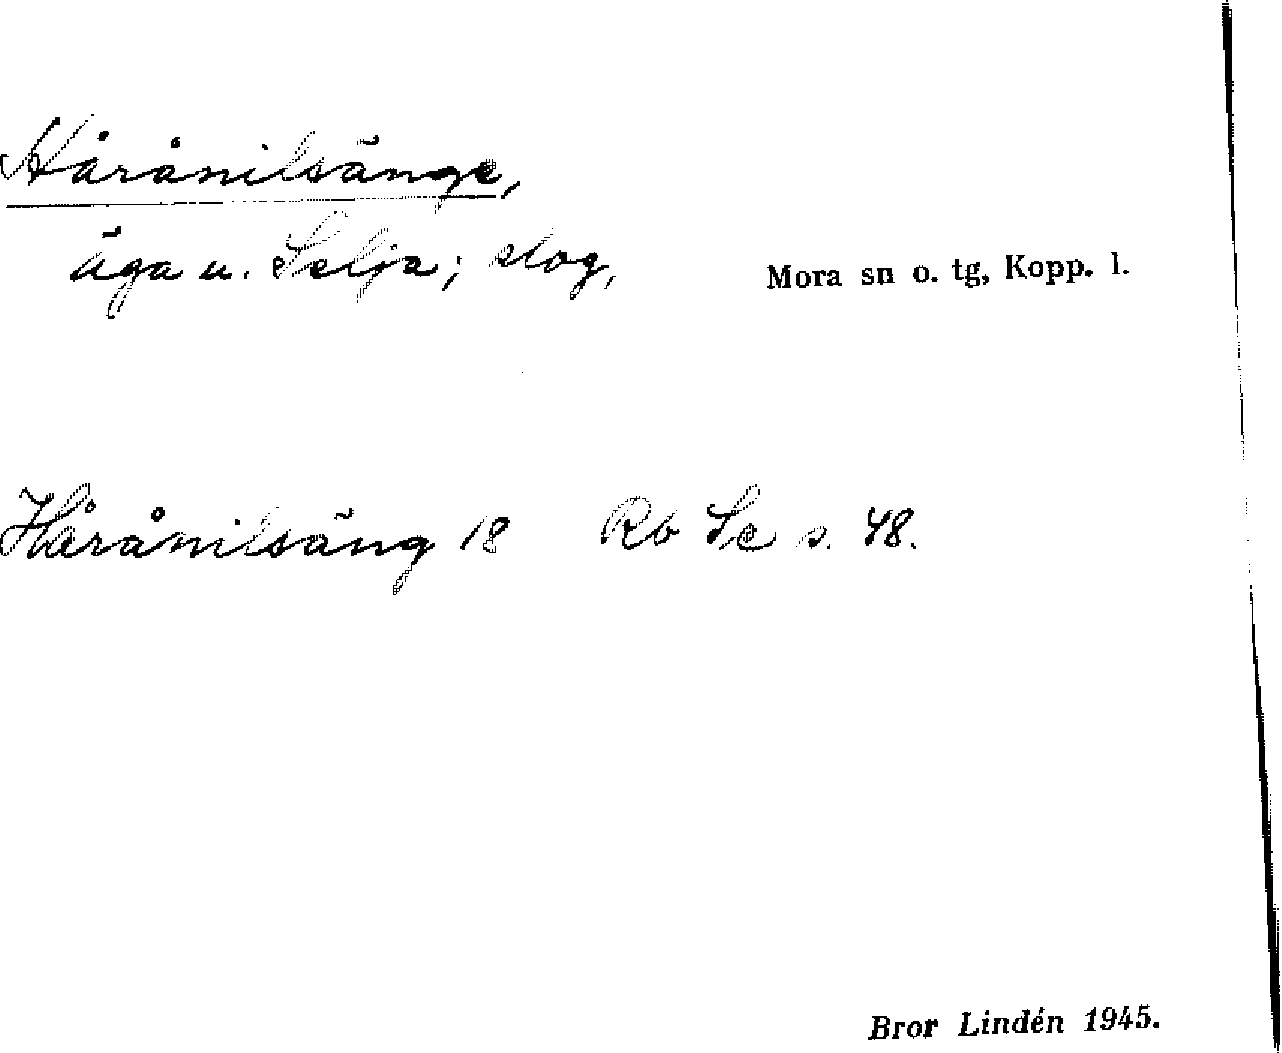 Håränilsänge,
äga u. Selja; slog,
Mora sn o. tg, Kopp. l.
Håränilsäng 18 Rb Se s. 48.
Bror Lindén 1945.